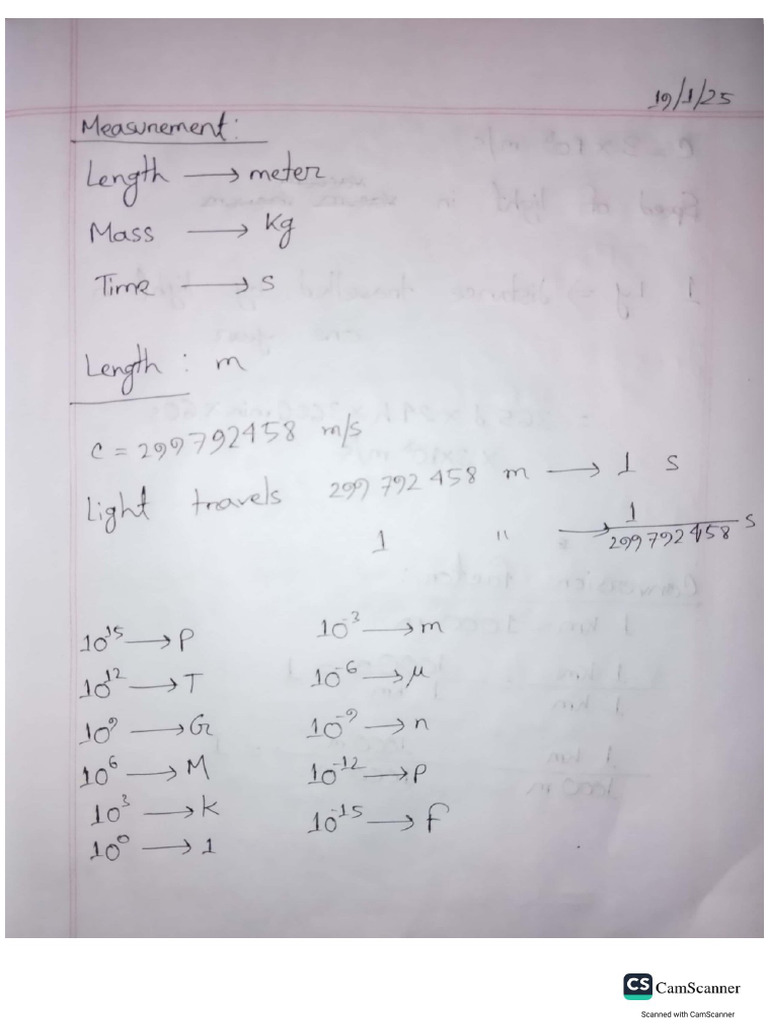 19/1/25
Measurement:
Length → meter
Mass → kg
Time → s
Length : m
c = 299792458 m/s
Light travels 299 792 458 m → 1 s
1 " → 1/299 792 458 s
10¹⁵ → P
10¹² → T
10⁹ → G
10⁶ → M
10³ → K
10⁰ → 1
10⁻³ → m
10⁻⁶ → μ
10⁻⁹ → n
10⁻¹² → p
10⁻¹⁵ → f
CS CamScanner
Scanned with CamScanner